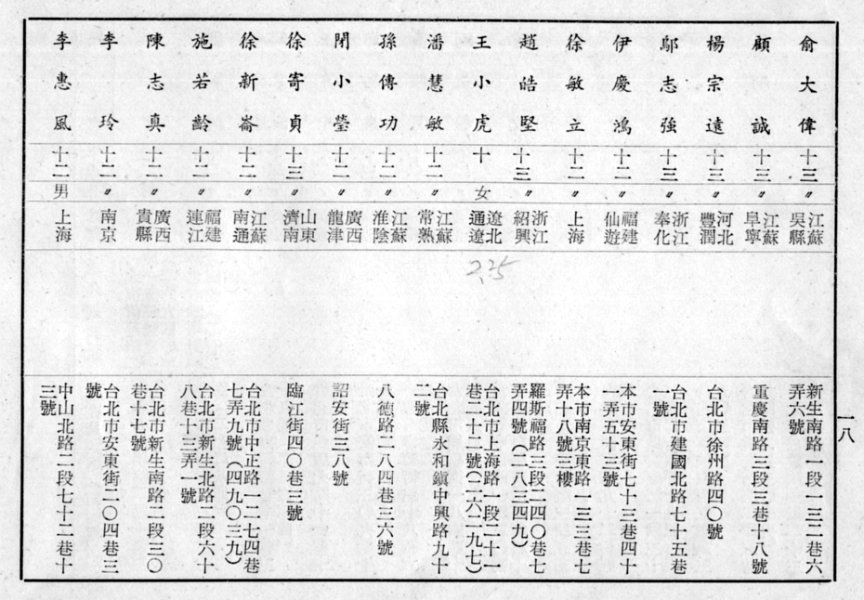 一八
俞大偉
十三
〃
江蘇
吳縣
新生南路一段一三二巷六
弄六號
顧誠
十三
〃
江蘇
阜寧
重慶南路三段三巷十八號
楊宗遠
十三
〃
河北
豐潤
台北市徐州路四〇號
鄔志強
十三
〃
浙江
奉化
台北市建國北路七十五巷
一號
伊慶鴻
十二
〃
福建
仙遊
本市安東街七十三巷四十
一弄五十三號
徐敏立
十二
〃
上海
本市南京東路一三三巷七
弄十八號三樓
趙皓堅
十三
〃
浙江
紹興
羅斯福路三段二四〇巷七
弄四號(二八三四九)
王小虎
十
女
遼北
通遼
2.25
台北市上海路一段二十一
巷二十二號(二六二九七)
潘慧敏
十二
〃
江蘇
常熟
台北縣永和鎮中興路九十
二號
孫傳功
十一
〃
江蘇
淮陰
八德路二八四巷三六號
閉小瑩
十二
〃
廣西
龍津
詔安街三八號
徐寄貞
十三
〃
山東
濟南
臨江街四〇巷三號
徐新崙
十二
〃
江蘇
南通
台北市中正路一二七四巷
七弄九號(四九〇三九)
施若齡
十二
〃
福建
連江
台北市新生北路二段六十
八巷十三弄一號
陳志真
十二
〃
廣西
貴縣
台北市新生南路二段三〇
巷十七號
李玲
十二
〃
南京
台北市安東街二〇四巷三
號
李惠風
十二
男
上海
中山北路二段七十二巷十
三號